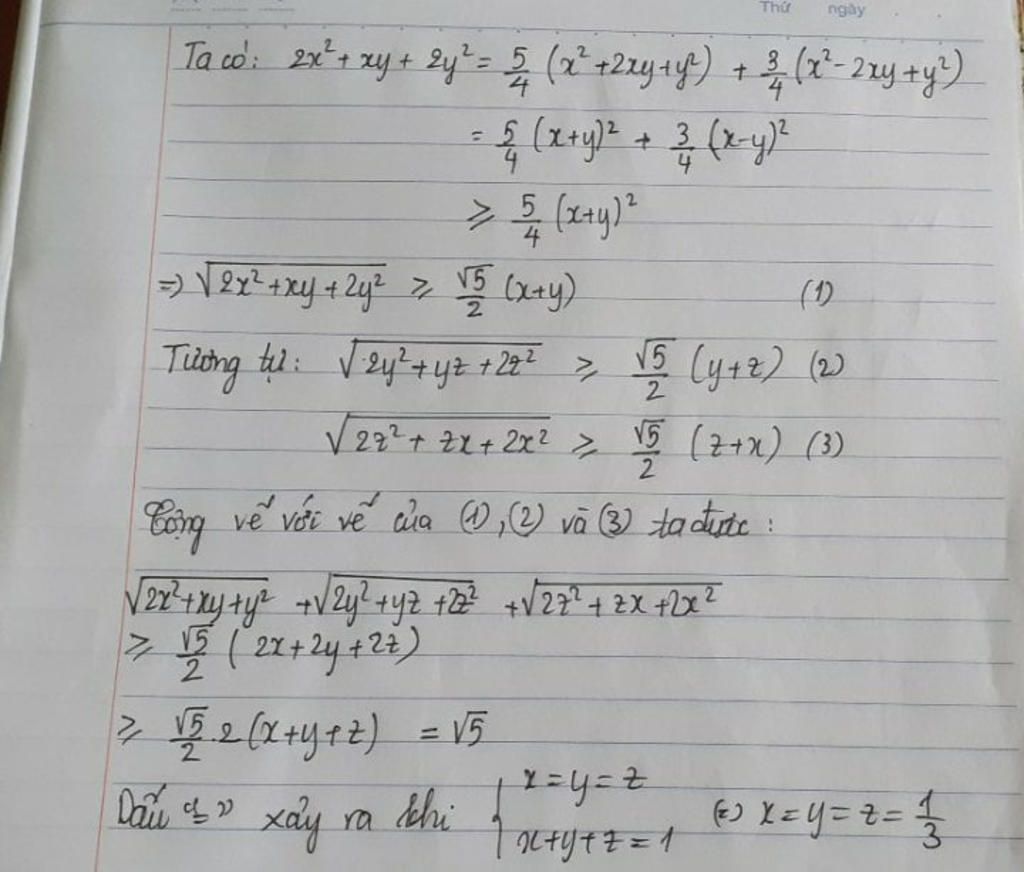 Thứ ngày
Ta có: 2x² + xy + 2y² = 5/4 (x² + 2xy + y²) + 3/4 (x² - 2xy + y²)
= 5/4 (x+y)² + 3/4 (x-y)²
≥ 5/4 (x+y)²
=> √(2x² + xy + 2y²) ≥ √5/2 (x+y) (1)
Tương tự: √(2y² + yz + 2z²) ≥ √5/2 (y+z) (2)
√(2z² + zx + 2x²) ≥ √5/2 (z+x) (3)
Cộng vế với vế của (1), (2) và (3) ta được:
√(2x² + xy + y²) + √(2y² + yz + 2z²) + √(2z² + zx + 2x²)
≥ √5/2 (2x + 2y + 2z)
≥ √5/2 . 2 (x+y+z) = √5
Dấu "=" xảy ra khi { x = y = z
x+y+z = 1 (=) x = y = z = 1/3